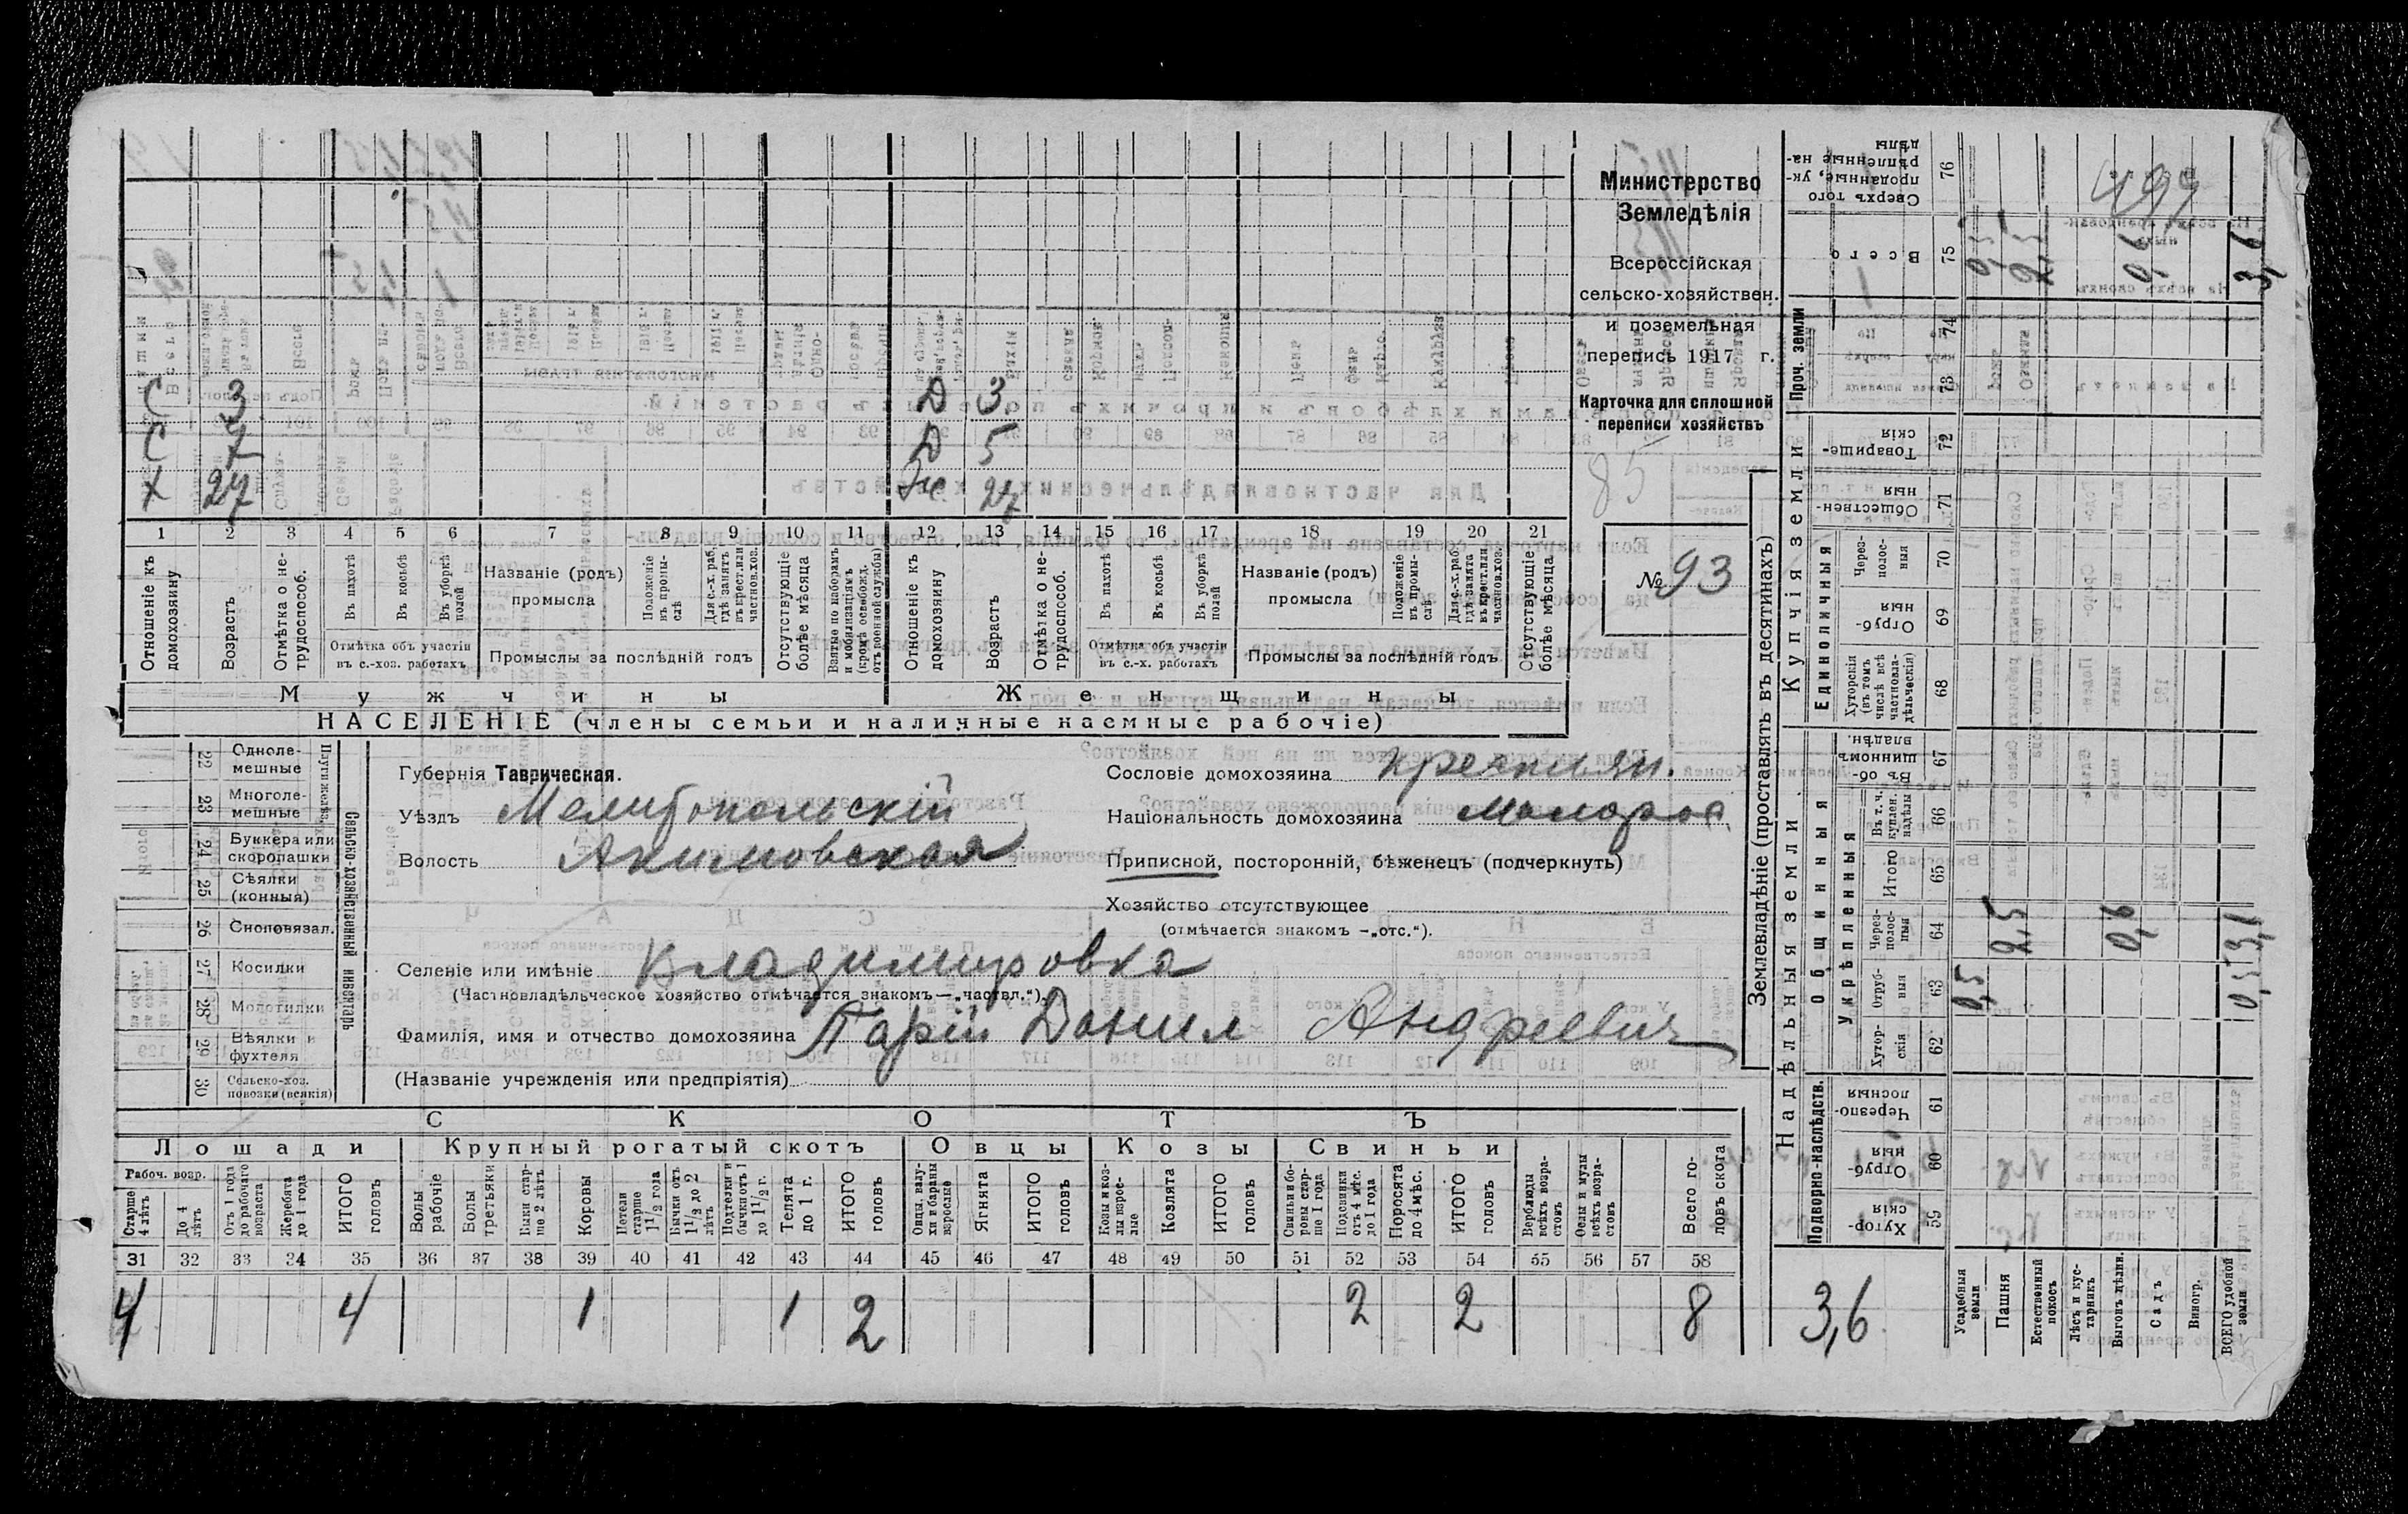 Министерство
Земледѣлія
Всероссійская
сельско-хозяйствен.
и поземельная
перепись 1917 г.
Карточка для сплошной
переписи хозяйствъ
85
№ 93
С 3 Д 3
С 7 Д 5
Х 27 Ж 27
1 2 3 4 5 6 7 8 9 10 11 12 13 14 15 16 17 18 19 20 21
Отношеніе къ домохозяину
Возрастъ
Отмѣтка о нетрудоспособ.
Въ пахотѣ
Въ косьбѣ
Въ уборкѣ полей
Отмѣтка объ участіи въ с.-хоз. работахъ
Названіе (родъ) промысла
Положеніе въ промыслѣ
Для с.-х. раб. гдѣ занятъ въ крест. или частнов. хоз.
Промыслы за послѣдній годъ
Отсутствующіе болѣе мѣсяца
Взятые по наборамъ и мобилизаціямъ (кромѣ освобожд. отъ военной службы)
Отношеніе къ домохозяину
Возрастъ
Отмѣтка о нетрудоспособ.
Въ пахотѣ
Въ косьбѣ
Въ уборкѣ полей
Отмѣтка объ участіи въ с.-х. работахъ
Названіе (родъ) промысла
Положеніе въ промыслѣ
Для с.-х. раб. гдѣ занята въ крест. или частнов. хоз.
Промыслы за послѣдній годъ
Отсутствующіе болѣе мѣсяца
Мужчины Женщины
НАСЕЛЕНІЕ (члены семьи и наличные наемные рабочіе)
Сельско-хозяйственный инвентарь
22 Одноле-мешные
23 Многоле-мешные
24 Буккера или скоропашки
25 Сѣялки (конныя)
26 Сноповязал.
27 Косилки
28 Молотилки
29 Вѣялки и фухтеля
30 Сельско-хоз. повозки (всякія)
Губернія Таврическая.
Уѣздъ Мелитопольскій
Волость Акимовская
Сословіе домохозяина крестьян.
Національность домохозяина малорос.
Приписной, посторонній, бѣженецъ (подчеркнуть)
Хозяйство отсутствующее
(отмѣчается знакомъ -„отс.“).
Селеніе или имѣніе Владимировка
(Частновладѣльческое хозяйство отмѣчается знакомъ—„частвл.“).
Фамилія, имя и отчество домохозяина Парій Данил Андреевич
(Названіе учрежденія или предпріятія)
СКОТЪ
Лошади Крупный рогатый скотъ Овцы Козы Свиньи
Рабоч. возр.
Старше 4 лѣтъ
До 4 лѣтъ
Отъ 1 года до рабочаго возраста
Жеребята до 1 года
ИТОГО головъ
Волы рабочіе
Волы третьяки
Быки старше 2 лѣтъ
Коровы
Нетели старше 1 1/2 года
Бычки отъ 1 1/2 до 2 лѣтъ
Подтелки и бычки отъ 1 до 1 1/2 г.
Телята до 1 г.
ИТОГО головъ
Овцы, валухи и бараны взрослые
Ягнята
ИТОГО головъ
Козы и козлы взрослые
Козлята
ИТОГО головъ
Свиньи и боровы старше 1 года
Подсвинки отъ 4 мѣс. до 1 года
Поросята до 4 мѣс.
ИТОГО головъ
Верблюды всѣхъ возрастовъ
Ослы и мулы всѣхъ возрастовъ
Всего головъ скота
31 32 33 34 35 36 37 38 39 40 41 42 43 44 45 46 47 48 49 50 51 52 53 54 55 56 57 58
4 4 1 1 2 2 2 8
Землевладѣніе (проставлять въ десятинахъ)
Надѣльныя земли Купчія земли Проч. земли
Подворно-наслѣдств. Общинныя Единоличныя
Укрѣпленныя
Хуторскія 59
Отрубныя 60
Черезполосныя 61
Хуторскія 62
Отрубныя 63
Черезполосныя 64
Итого 65
Въ т. ч. куплен. надѣлы 66
Въ общинномъ владѣн. 67
Хуторскія (въ томъ числѣ всѣ частновладѣльческія) 68
Отрубныя 69
Черезполосныя 70
Общественныя 71
Товарищескія 72
73
74
Всего 75
Сверхъ того проданные, укрѣпленные надѣлы 76
Усадебныя земли 0,5 0,5
Пашня 2,5 2,5
Естественный покосъ
Лѣсъ и кустарникъ
Выгонъ дѣлин. 0,6 0,6
Садъ
Виногр.
ВСЕГО удобной земли 0,5 3,1 3,6
3,6
499